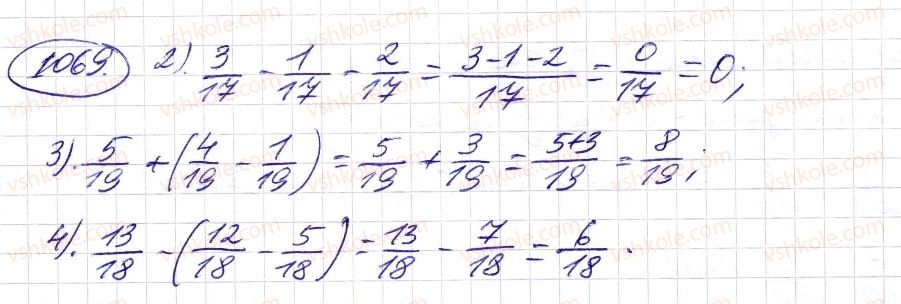 1069. 2). 3/17 - 1/17 - 2/17 = (3-1-2)/17 = 0/17 = 0;
3). 5/19 + (4/19 - 1/19) = 5/19 + 3/19 = (5+3)/19 = 8/19;
4). 13/18 - (12/18 - 5/18) = 13/18 - 7/18 = 6/18.